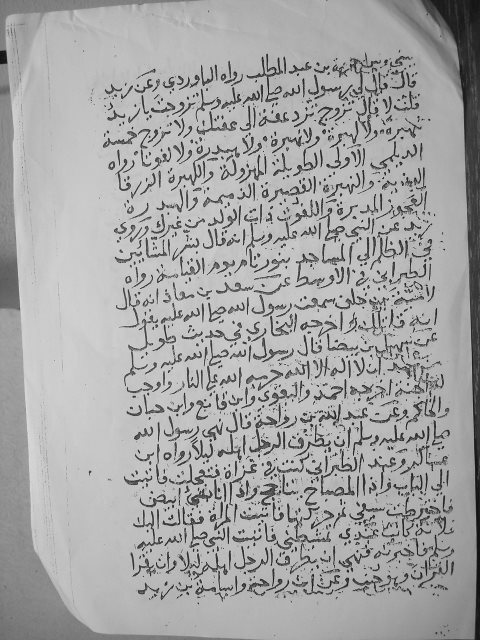 بن عبد المطلب رواه الباوردي وعن زيد
قال قال لي رسول الله صلى الله عليه وسلم تزوجت يا زيد
قلت لا قال تزوج تزدد عفة الى عفتك ولا تزوج خمسة
شهبرة ولا لهبرة ولا نهبرة ولا هيدرة ولا لفوتا رواه
الديلمي الاولى الطويلة المهزولة واللهبرة الزرقا
البذية والنهبرة القصيرة الذميمة والهيدرة
العجوز المدبرة واللفوت ذات الولد من غيرك وروى
زيد عن النبي صلى الله عليه وسلم انه قال بشر المشائين
في الظلم الى المساجد بنور تام يوم القيامة رواه
الطبراني في الاوسط عن سعد بن معاذ انه قال
لامية بن خلف سمعت رسول الله صلى الله عليه يقول
انه قاتلك اخرجه البخاري في حديث طويل
عن سهيل بن بيضا قال رسول الله صلى الله عليه وسلم
ان لا اله الا الله حرمه الله على النار واوجب
له الجنة اخرجه احمد والبغوي وابن قانع وابن حبان
والحاكم وعن عبد الله بن رواحة قال نهى رسول الله
صلى الله عليه وسلم ان يطرق الرجل اهله ليلا رواه ابن
عساكر وعبد الطبراني كنت في غزاة فتعجلت فاتيت
الى الباب واذا المصباح واذا انا ابيض
سيفي ثم حركتها فانتبهت المراة فقالت اليك
فلانة كانت عندي تمشطني فاتيت النبي صلى الله عليه
وسلم فاخبرته فنهى ان يطرق الرجل اهله ليلا وان يقرا
القران وهو جنب وعن ابن رواحة واسامة بن زيد